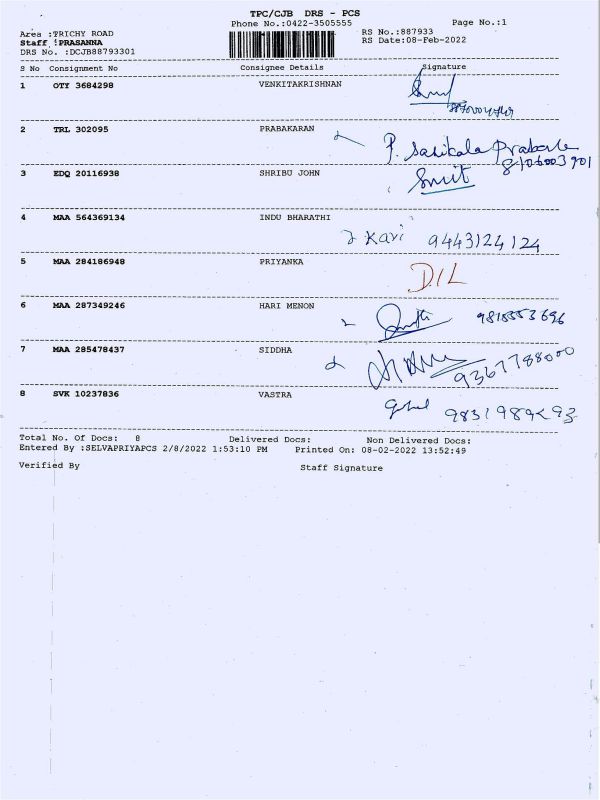 TPC/CJB DRS - PCS
Phone No.:0422-3505555 Page No.:1
Area :TRICHY ROAD RS No.:887933
Staff :PRASANNA RS Date:08-Feb-2022
DRS No. :DCJB88793301
S No Consignment No Consignee Details Signature
1 OTY 3684298 VENKITAKRISHNAN
2 TRL 302095 PRABAKARAN
P. Sasikala
8106003901
3 EDQ 20116938 SHRIBU JOHN
4 MAA 564369134 INDU BHARATHI
Kavi 9443124124
5 MAA 284186948 PRIYANKA
D.I L
6 MAA 287349246 HARI MENON
7 MAA 285478437 SIDDHA
9367788000
8 SVK 10237836 VASTRA
Total No. Of Docs: 8 Delivered Docs: Non Delivered Docs:
Entered By :SELVAPRIYAPCS 2/8/2022 1:53:10 PM Printed On: 08-02-2022 13:52:49
Verified By Staff Signature